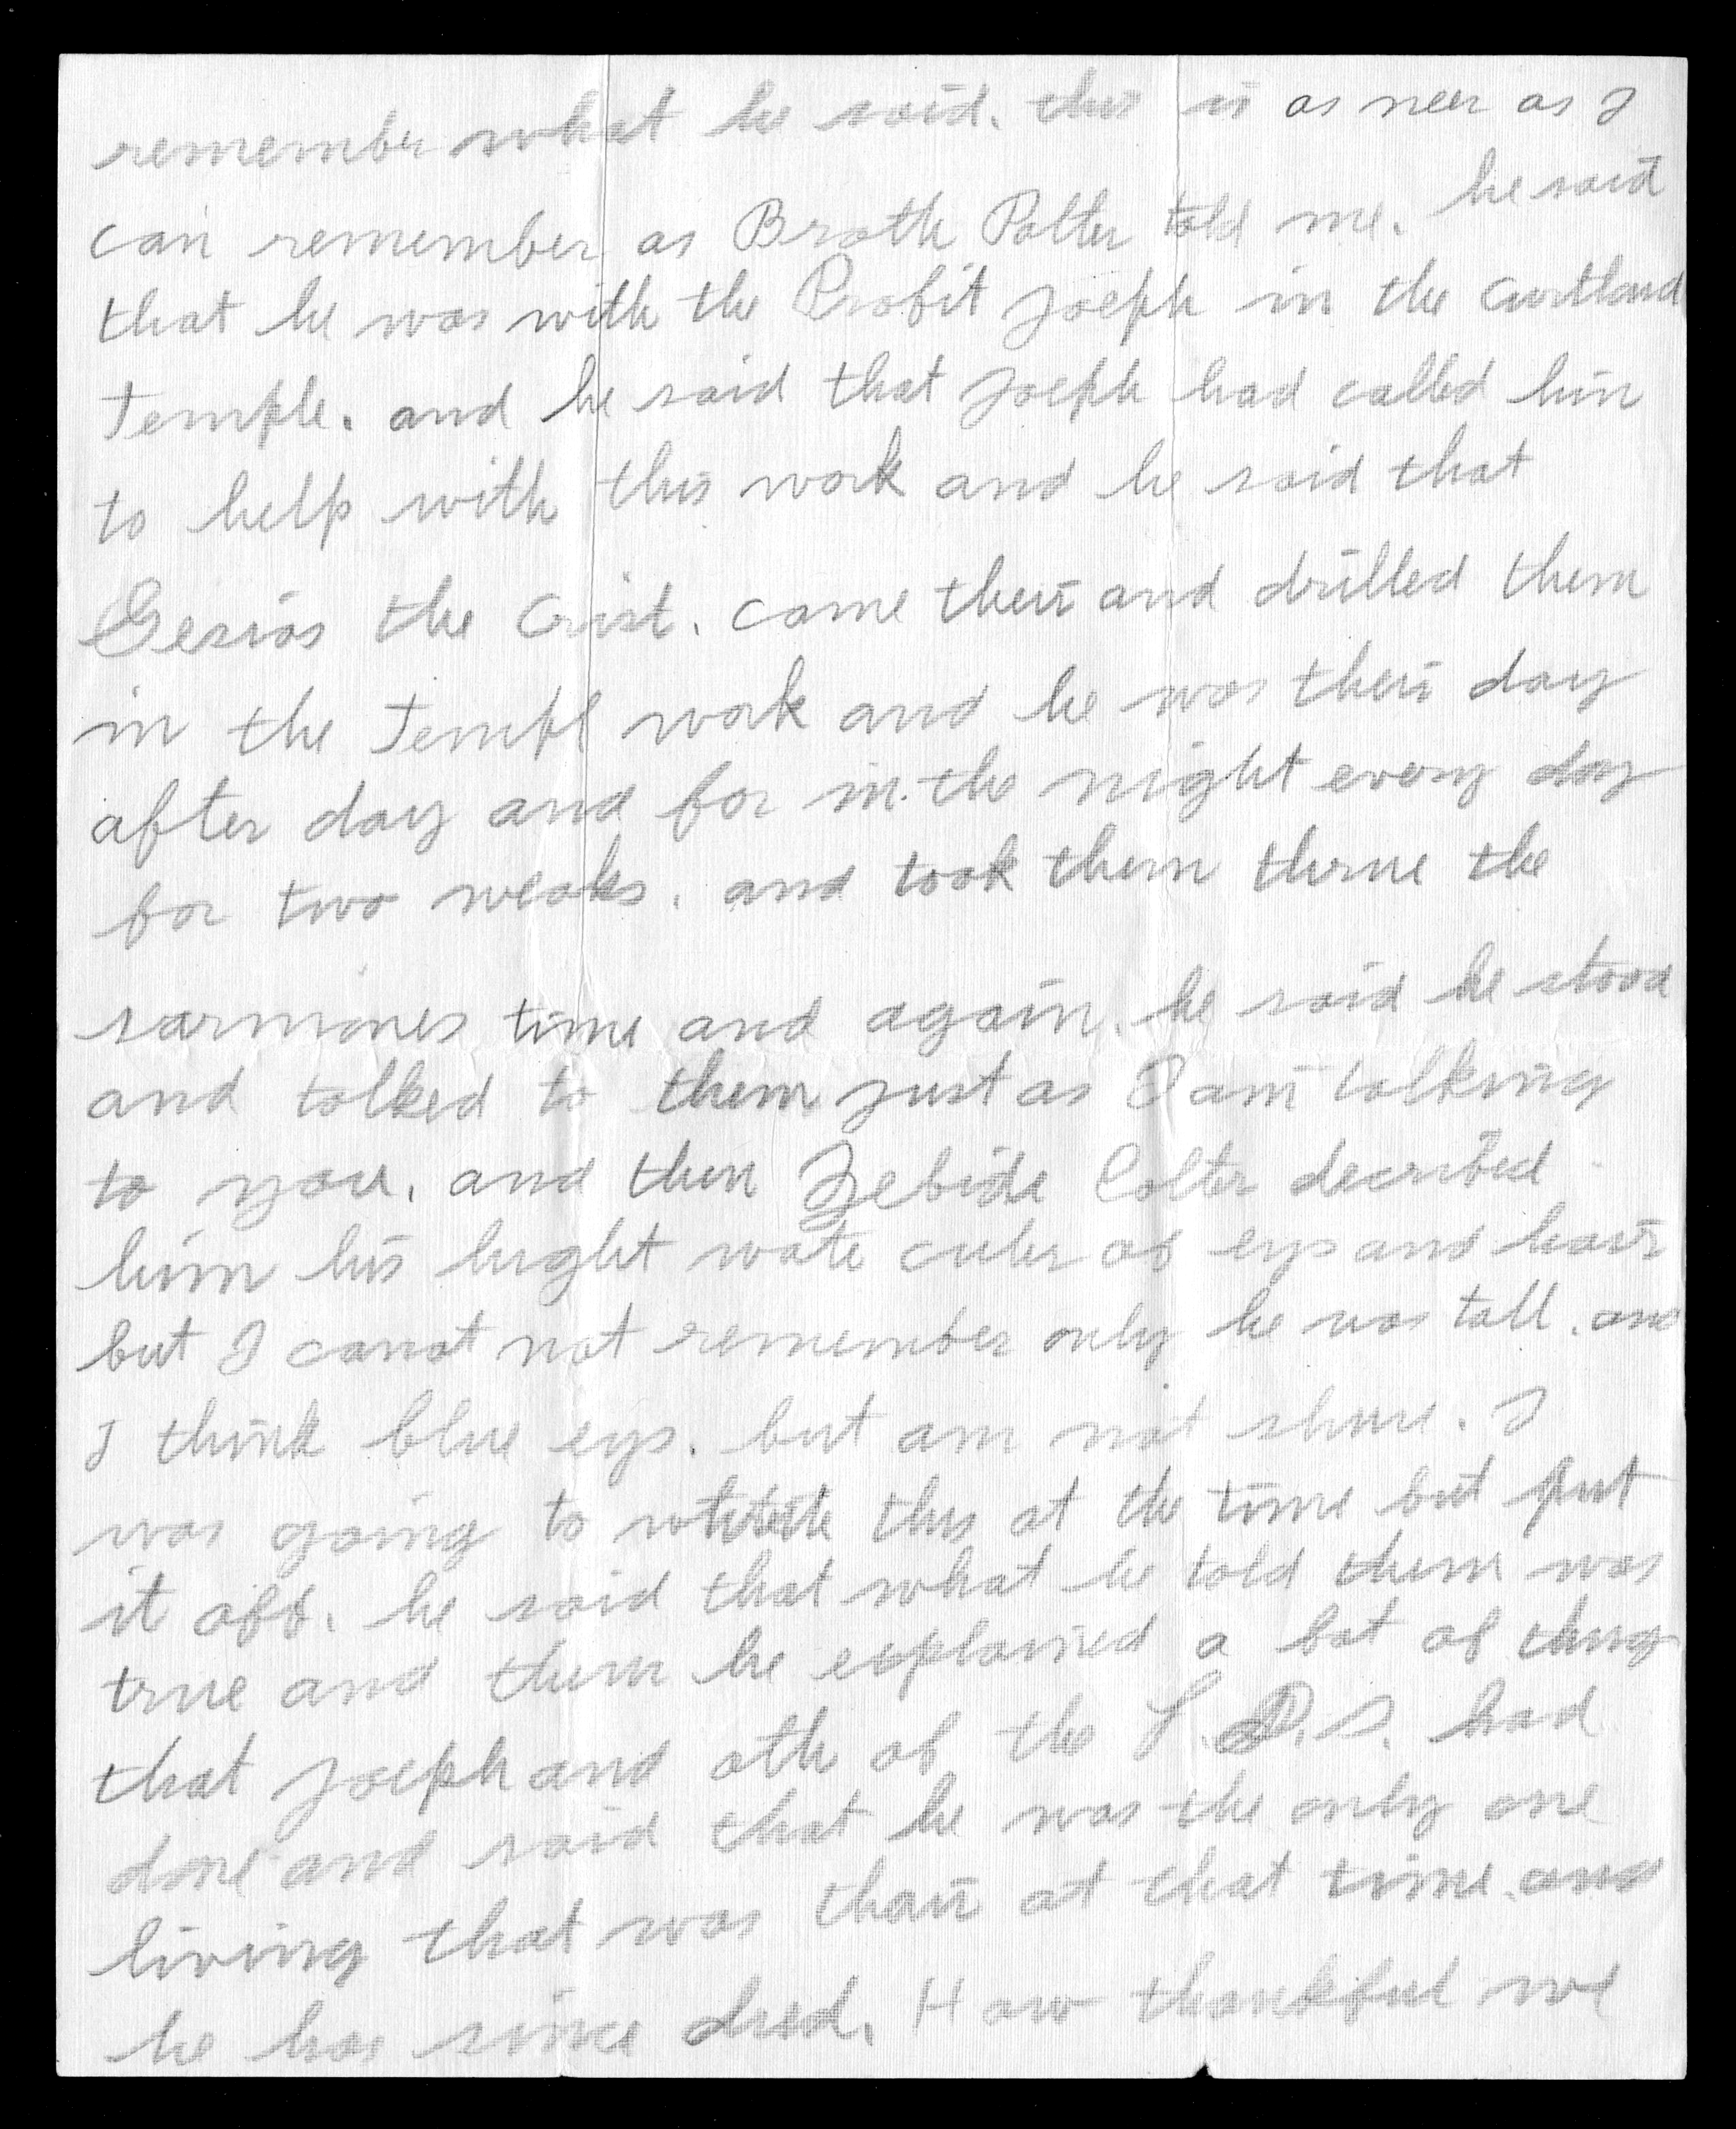 remember what he said. this is as neer as I
can remember as Broth Polter told me. he said
that he was with the Profit Joeph in the Curtland
Temple. and he said that Joeph had called him
to help with this work and he said that
Gesios the Crist. came their and drilled them
in the Templ work and he was their day
after day and for in the night every day
for two weaks. and took them thrue the
sarmones time and again. he said he stood
and talked to them just as I am talking
to you. and then Zebide Colter decribed
him his hight wate culer of eys and hair
but I canot not remember only he was tall. and
I think blue eys. but am not shure. I
was going to this at the time but put
it off. he said that what he told them was
true and then he explained a lot of thing
that Joeph and oth of the L.D.S. had
done and said that he was the only one
living that was thair at that time. and
he has since died. How thankful we